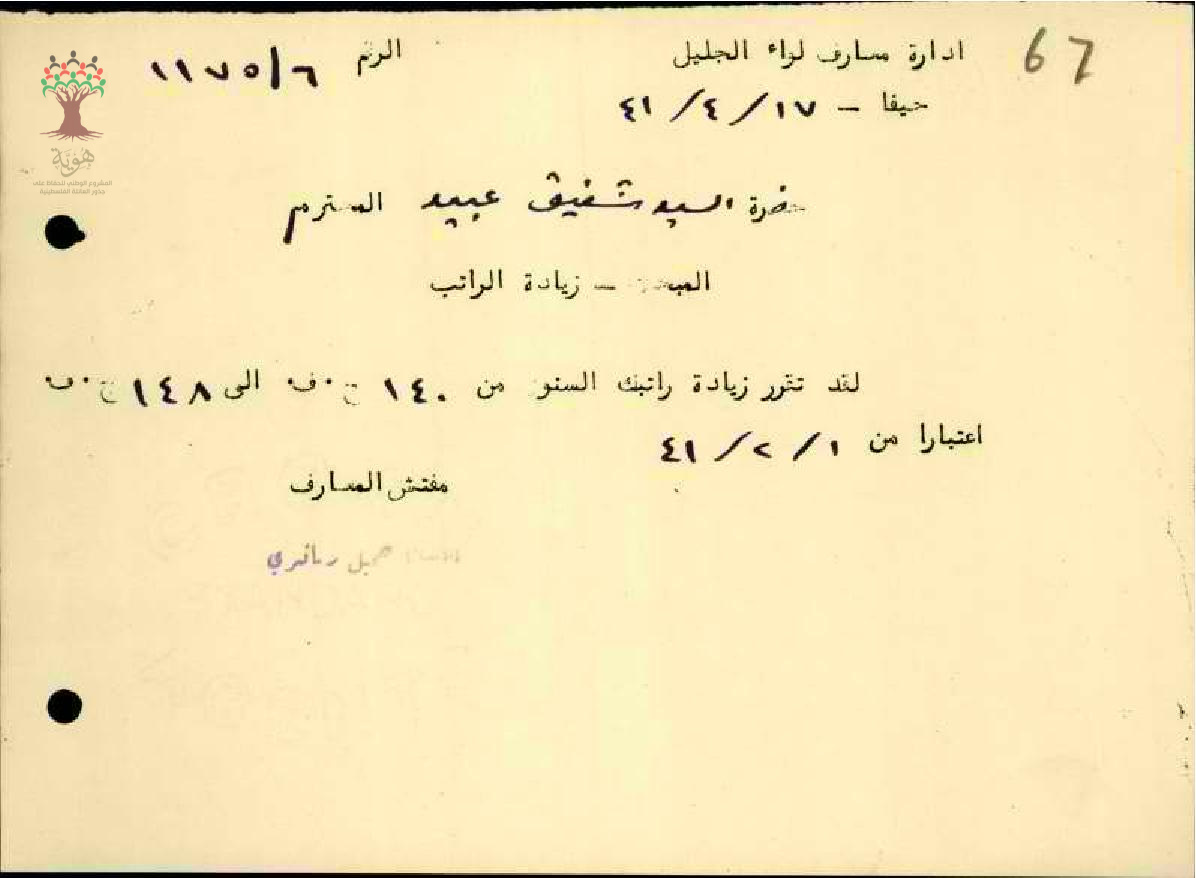 67
ادارة معارف لواء الجليل
الرقم ١١٧٥/٦
حيفا – ١٧/٤/٤١
هُوِيَّة
المشروع الوطني للحفاظ على
جذور العائلة الفلسطينية
حضرة السيد شفيق عبيد المحترم
المبحث – زيادة الراتب
لقد تقرر زيادة راتبك السنوي من ١٤٠ ج.ف الى ١٤٨ ج.ف
اعتبارا من ١/٢/٤١
مفتش المعارف
جميل